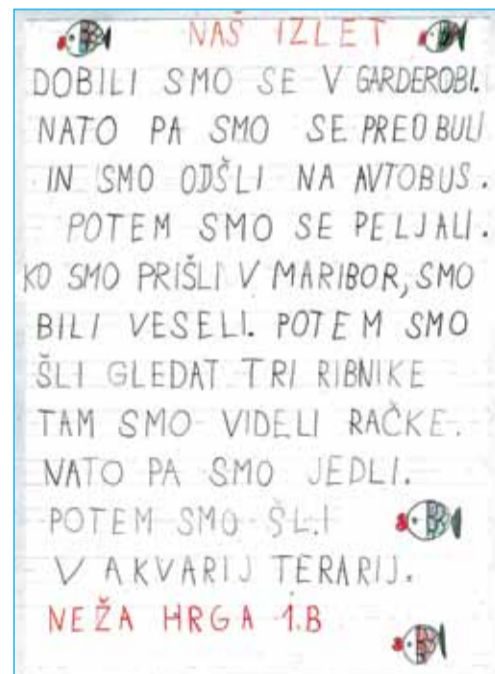 NAŠ IZLET
DOBILI SMO SE V GARDEROBI.
NATO PA SMO SE PREOBULI
IN SMO ODŠLI NA AVTOBUS.
POTEM SMO SE PELJALI.
KO SMO PRIŠLI V MARIBOR, SMO
BILI VESELI. POTEM SMO
ŠLI GLEDAT TRI RIBNIKE
TAM SMO VIDELI RAČKE.
NATO PA SMO JEDLI.
POTEM SMO ŠLI
V AKVARIJ TERARIJ.
NEŽA HRGA 1.B